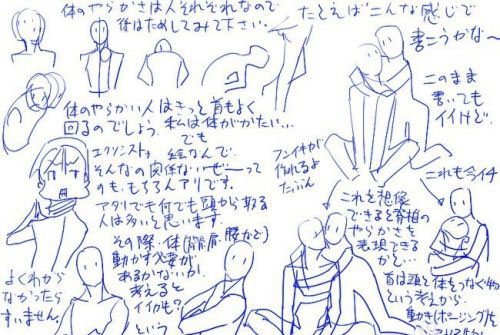 体のやらかさは人それぞれなので
体はためしてみて下さい。
たとえばこんな感じで
書こうかな〜
このまま
書いても
イイけど.
体のやらかい人はきっと首もよく
回るのでしょう. 私は体がかたい…
でも
エクソシスト〟
絵なんで.
そんなの関係ないぜーって
のも.もちろんアリです.
アタリでも何でも頭から取る
人は多いと思います.
その際.体(背肩.腰など)
動かす必要が
あるかないか.
考えると
イイカも?
という
フンイキが
作れるよ
たぶん
これも今イチ
これを想像
できると背柏の
やらかさを
表現できる
かと…
首は頭と体をつなぐ物
という考えから.
動き(ポージング)に
よくわから
なかったら
すいません.